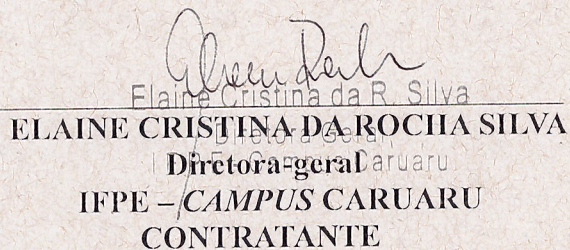 Elaine Cristina da R. Silva
ELAINE CRISTINA DA ROCHA SILVA
Diretora Geral
Diretora-geral
IFPE - Campus Caruaru
IFPE – CAMPUS CARUARU
CONTRATANTE